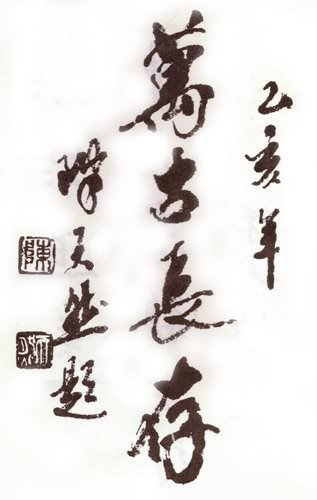 乙亥年
萬古長存
陳天然題
陳